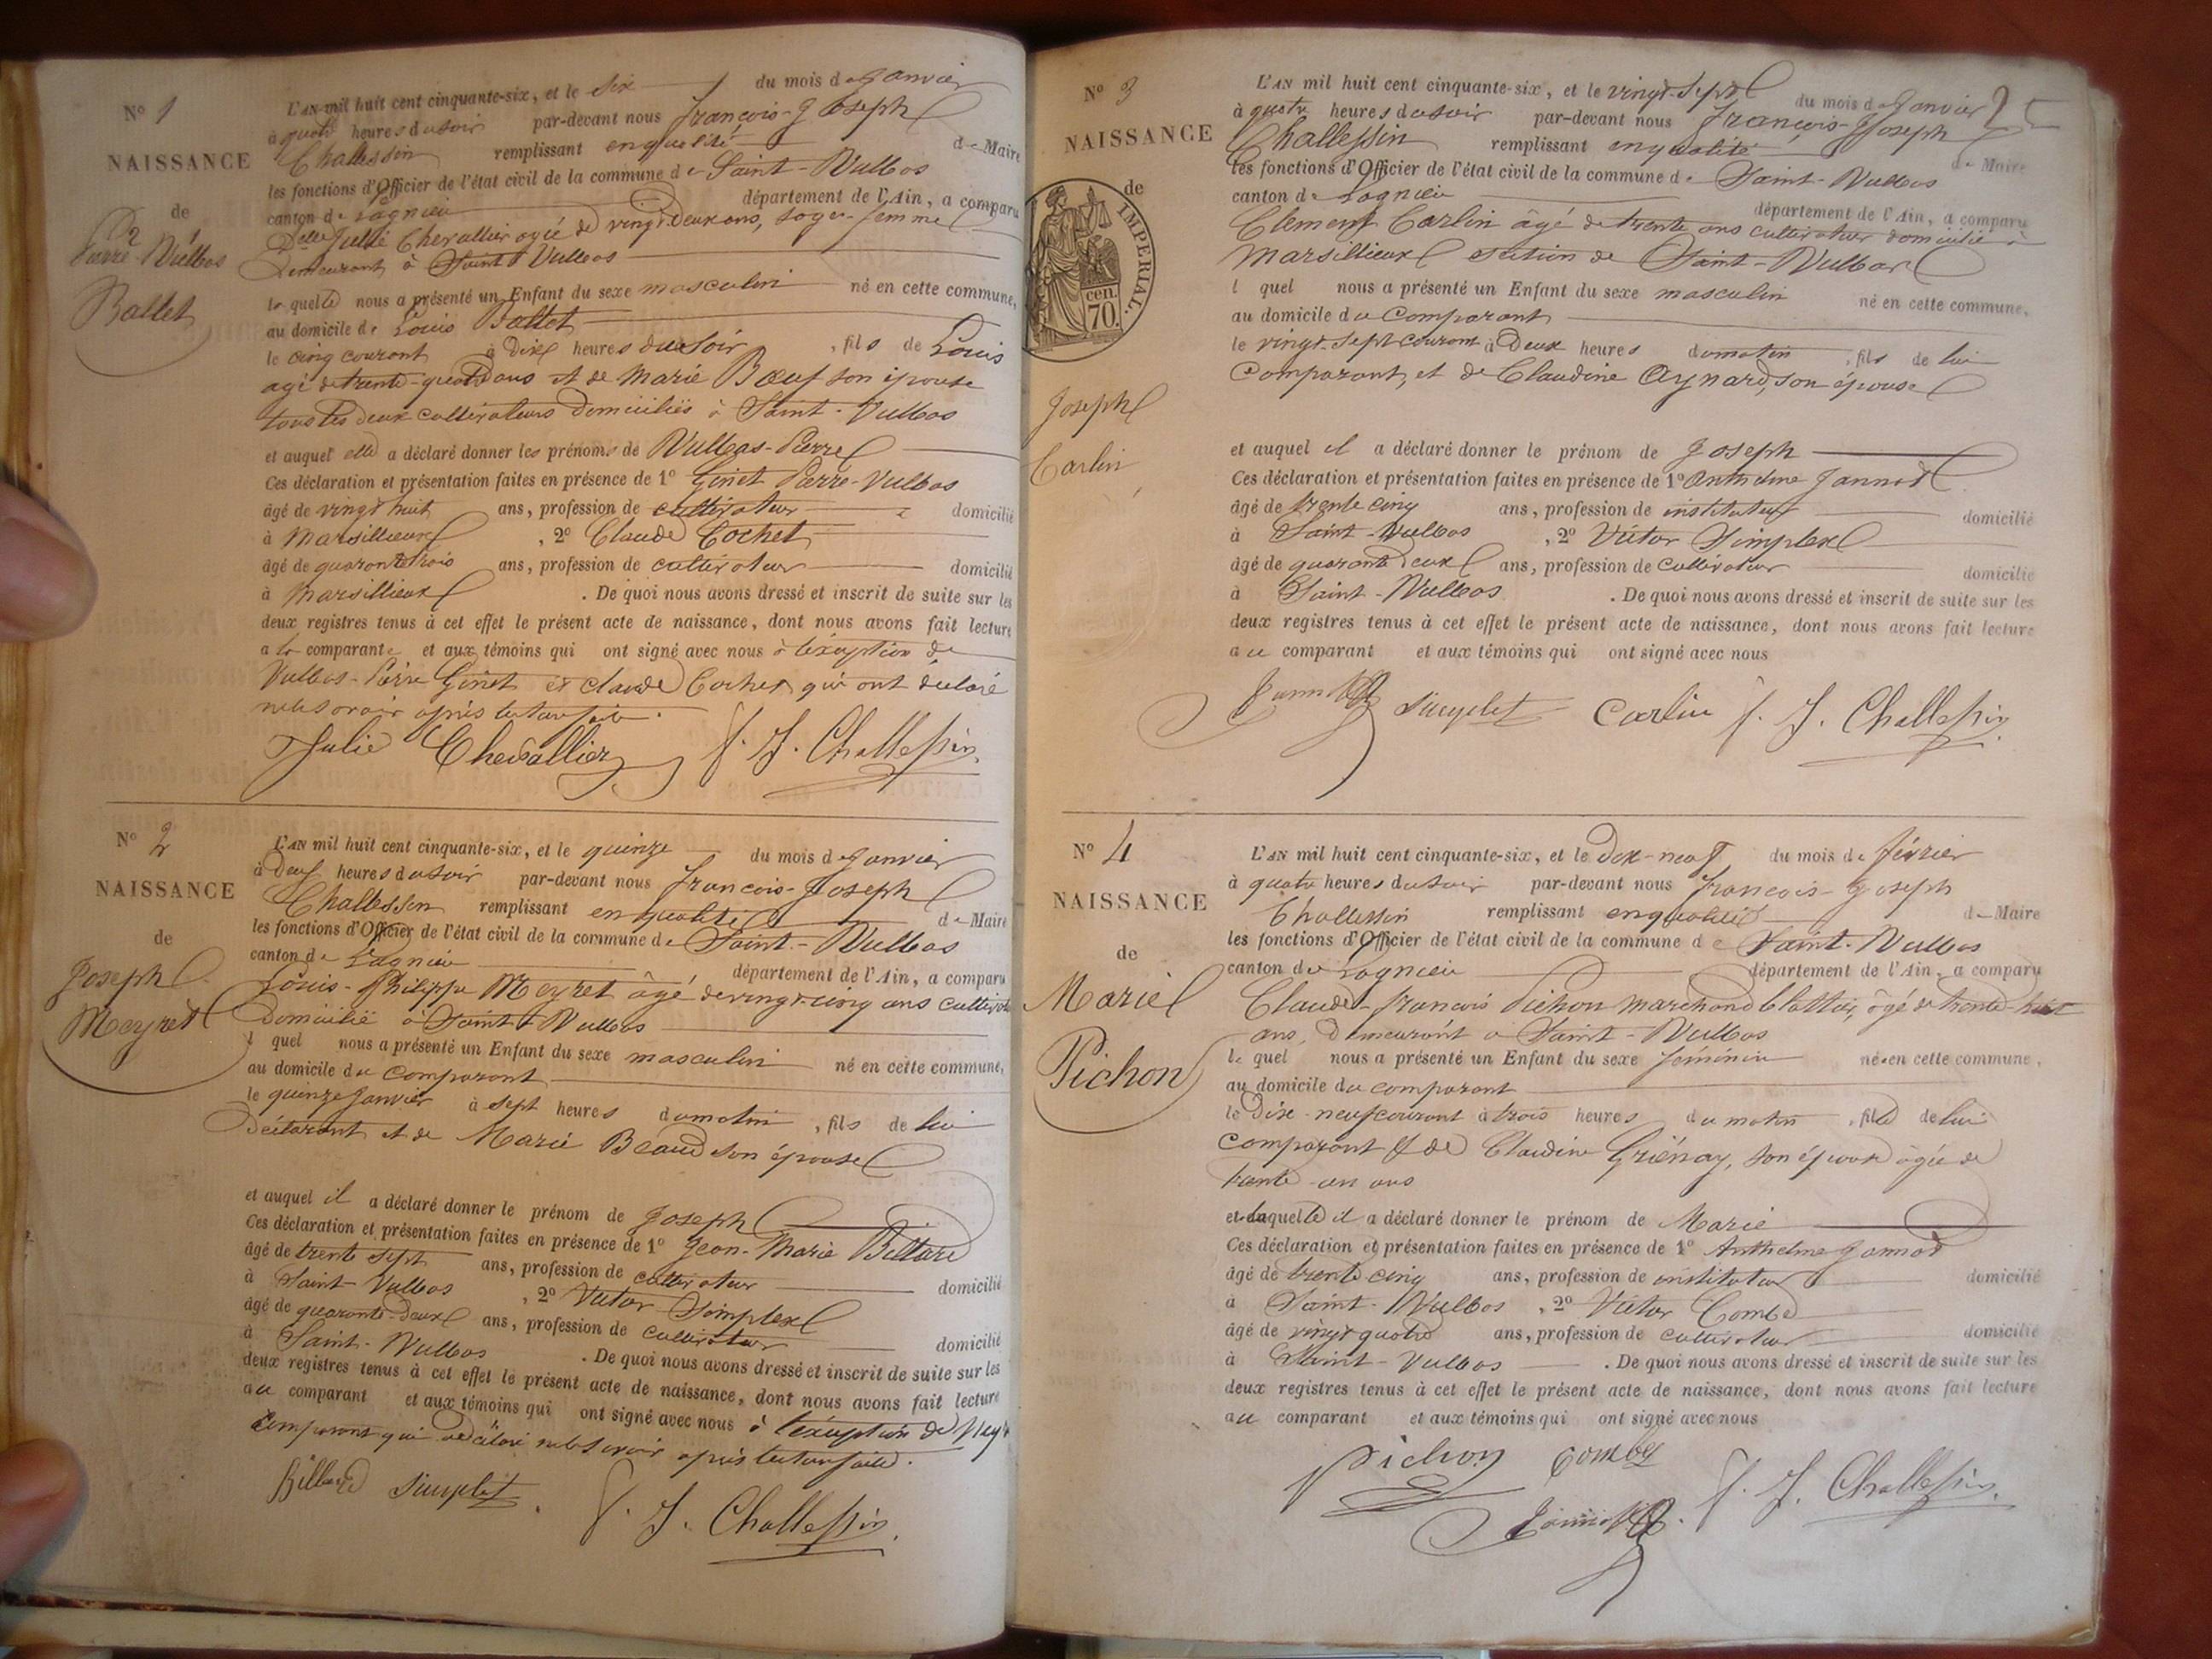 N° 1
NAISSANCE
de
Pierre-Vulbas
Ballet
L'AN mil huit cent cinquante-six, et le six du mois de Janvier
à quatre heures du soir par-devant nous François-Joseph
Challessin remplissant en qualité de Maire
les fonctions d'Officier de l'état civil de la commune de Saint-Vulbas
canton de Lagnieu département de l'Ain, a comparu
Delle Julie Chevallier agée de vingt-deux ans, sage-femme
Demeurant à Saint Vulbas
laquelle nous a présenté un Enfant du sexe masculin né en cette commune,
au domicile de Louis Ballet
le cinq courant à Dix heures du soir, fils de Louis
agé de trente-quatre ans et de Marie Bœuf son épouse
tous les deux cultivateurs domiciliés à Saint-Vulbas
et auquel elle a déclaré donner les prénoms de Vulbas-Pierre
Ces déclaration et présentation faites en présence de 1° Ginet Pierre-Vulbas
âgé de vingt huit ans, profession de cultivateur domicilié
à Marsillieux, 2° Claude Cochet
âgé de quarante trois ans, profession de cultivateur domicilié
à Marsillieux. De quoi nous avons dressé et inscrit de suite sur les
deux registres tenus à cet effet le présent acte de naissance, dont nous avons fait lecture
a la comparante et aux témoins qui ont signé avec nous à l'éxception de
Vulbas-Pierre Ginet et claude Cochet qui ont déclaré
ne le savoir après lecture faite.
Julie Chevallier f. J. Challessin
N° 2
NAISSANCE
de
Joseph
Meyret
L'AN mil huit cent cinquante-six, et le quinze du mois de Janvier
à Deux heures du soir par-devant nous François-Joseph
Challessin remplissant en qualité de Maire
les fonctions d'Officier de l'état civil de la commune de Saint-Vulbas
canton de Lagnieu département de l'Ain, a comparu
Louis-Philippe Meyret âgé de vingt-cinq ans
Domicilié à Saint Vulbas
lequel nous a présenté un Enfant du sexe masculin né en cette commune,
au domicile du comparant
le quinze Janvier à sept heures du matin, fils de lui
Déclarant et de Marie Beaud son épouse
et auquel il a déclaré donner le prénom de Joseph
Ces déclaration et présentation faites en présence de 1° Jean-Marie Billard
âgé de trente sept ans, profession de cultivateur domicilié
à Saint-Vulbas, 2° Victor Simplex
âgé de quarante-deux ans, profession de cultivateur domicilié
à Saint-Vulbas. De quoi nous avons dressé et inscrit de suite sur les
deux registres tenus à cet effet le présent acte de naissance, dont nous avons fait lecture
au comparant et aux témoins qui ont signé avec nous à l'éxception de
comparant qui a déclaré ne le savoir après lecture faite.
Billard Simplet f. J. Challessin
N° 3
NAISSANCE
de
IMPERIAL.
cen.
70.
Joseph
Carlin
L'AN mil huit cent cinquante-six, et le vingt-sept du mois de Janvier
à quatre heures du soir par-devant nous François-Joseph
Challessin remplissant en qualité de Maire
les fonctions d'Officier de l'état civil de la commune de Saint-Vulbas
canton de Lagnieu département de l'Ain, a comparu
Clement Carlin âgé de trente ans cultivateur domicilié à
Marsillieux section de Saint-Vulbas
lquel nous a présenté un Enfant du sexe masculin né en cette commune,
au domicile du Comparant
le vingt-sept courant à Deux heures du matin, fils de lui
Comparant, et de Claudine Aynard, son épouse
et auquel il a déclaré donner le prénom de Joseph
Ces déclaration et présentation faites en présence de 1° Anthelme Jannod
âgé de trente cinq ans, profession de instituteur domicilié
à Saint-Vulbas, 2° Victor Simplex
âgé de quarante deux ans, profession de Cultivateur domicilié
à Saint-Vulbas. De quoi nous avons dressé et inscrit de suite sur les
deux registres tenus à cet effet le présent acte de naissance, dont nous avons fait lecture
au comparant et aux témoins qui ont signé avec nous
Jannod Simplet Carlin f. J. Challessin
N° 4
NAISSANCE
de
Marie
Pichon
L'AN mil huit cent cinquante-six, et le Dix-neuf du mois de février
à quatre heures du soir par-devant nous François-Joseph
Challessin remplissant en qualité de Maire
les fonctions d'Officier de l'état civil de la commune de Saint-Vulbas
canton de Lagnieu département de l'Ain, a comparu
Claude-françois Pichon marchand blattier, âgé de trente-huit
ans, Demeurant à Saint-Vulbas
lequel nous a présenté un Enfant du sexe féminin née en cette commune,
au domicile du comparant
le Dix-neuf courant à trois heures du matin, fille de lui
comparant & de Claudine Griénay, son épouse âgée de
trente-un ans
et laquelle il a déclaré donner le prénom de Marie
Ces déclaration et présentation faites en présence de 1° Anthelme Jannod
âgé de trente cinq ans, profession de instituteur domicilié
à Saint-Vulbas, 2° Victor Combe
âgé de vingt quatre ans, profession de cultivateur domicilié
à Saint-Vulbas. De quoi nous avons dressé et inscrit de suite sur les
deux registres tenus à cet effet le présent acte de naissance, dont nous avons fait lecture
au comparant et aux témoins qui ont signé avec nous
Pichon Combe
Jannod f. J. Challessin